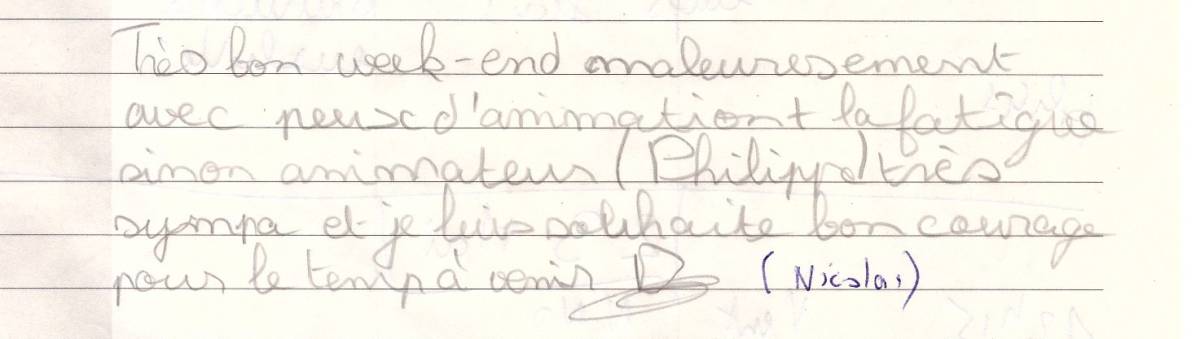 Très bon week-end maleuresement
avec peux d'animationt la fatigue
sinon animateur (Philippe) très
sympa et je luis souhaite bon courage
pour le temp à venir
(Nicolas)